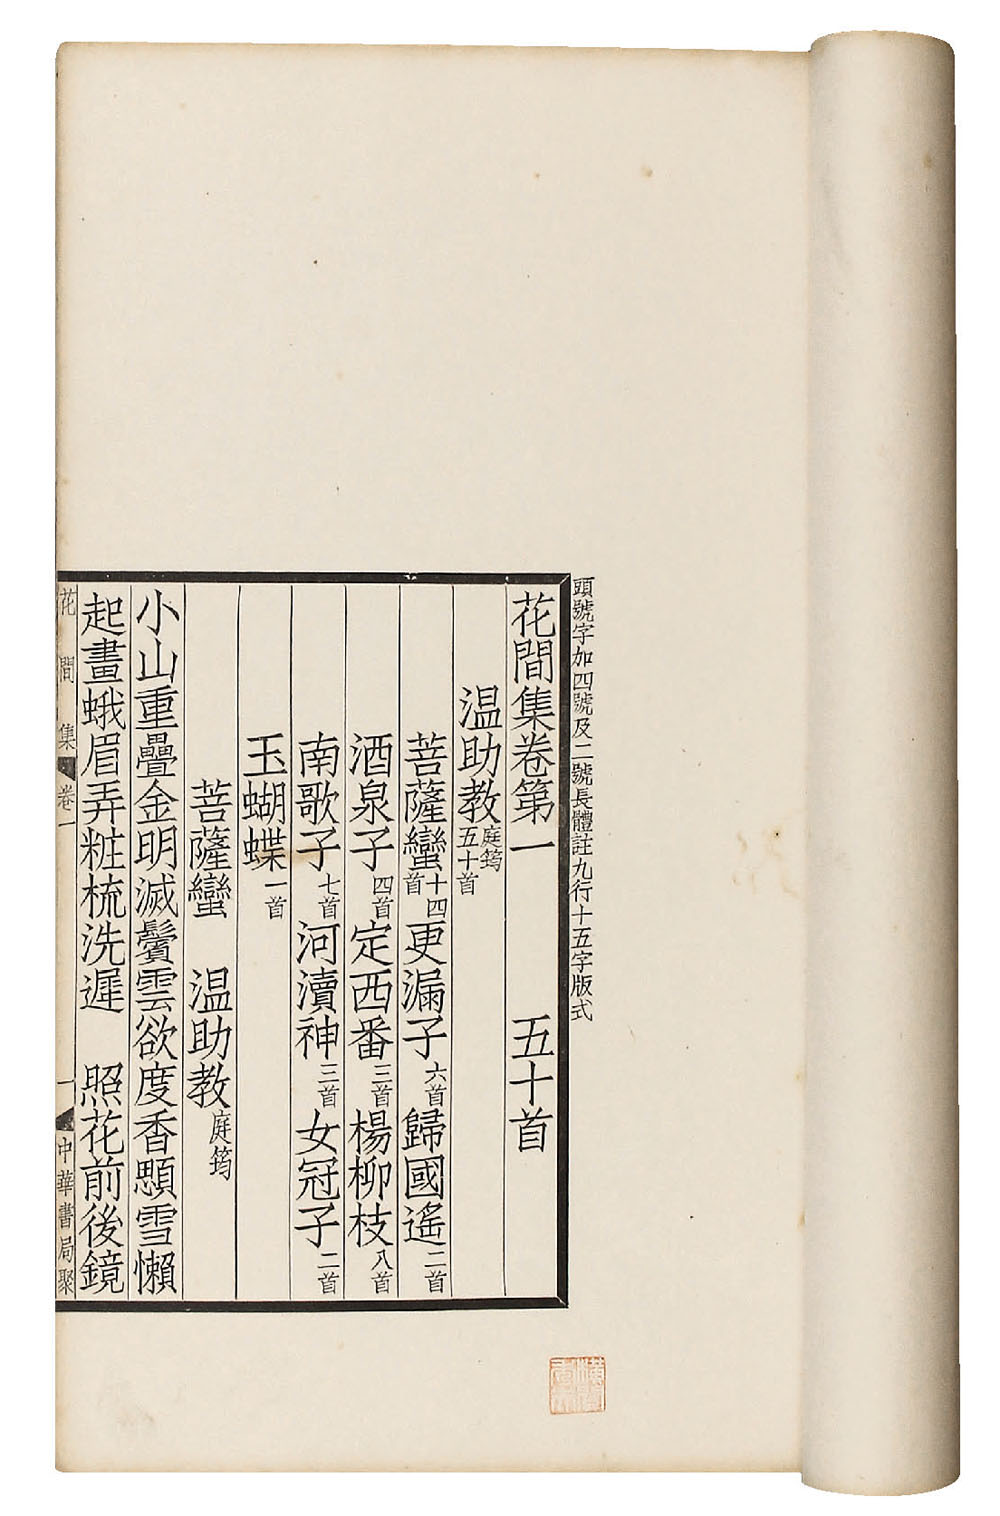 頭號字加四號及二號長體註九行十五字版式
花間集卷第一　五十首
温助教庭筠五十首
菩薩蠻十四首更漏子六首歸國遙二首
酒泉子四首定西番三首楊柳枝八首
南歌子七首河瀆神三首女冠子二首
玉蝴蝶一首
菩薩蠻　温助教庭筠
小山重疊金明滅鬢雲欲度香顋雪懶
起畫蛾眉弄粧梳洗遲　照花前後鏡
花間集　卷一　一　中華書局聚